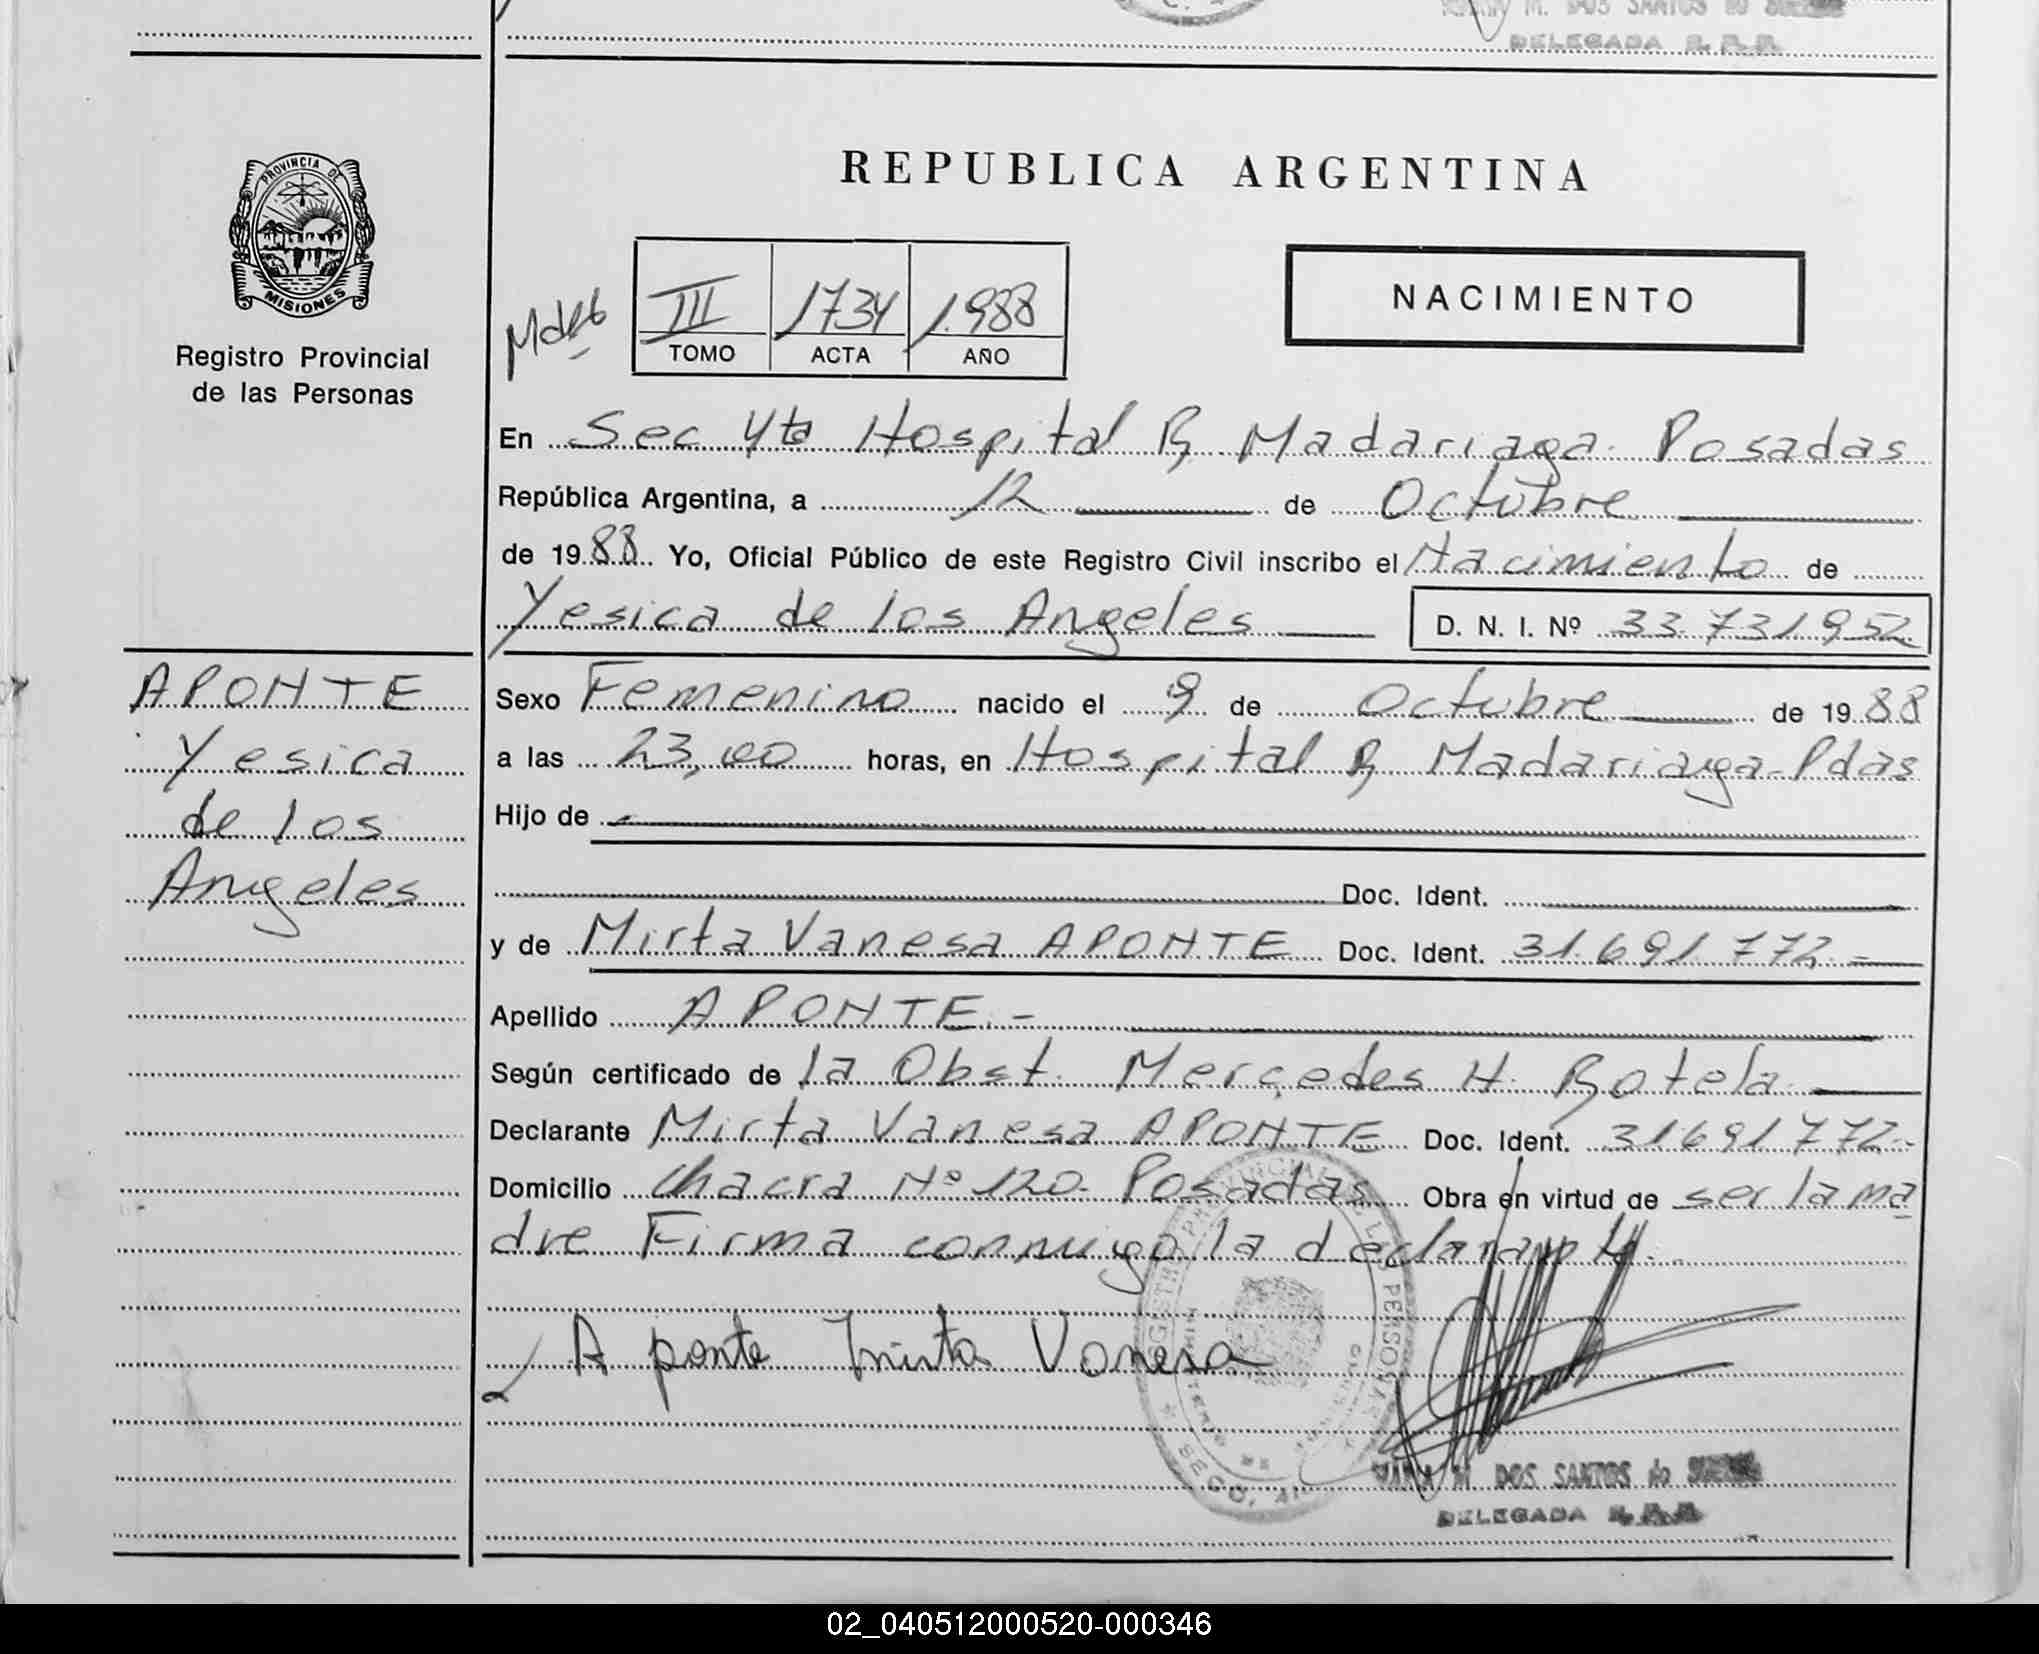 MARIA M. DOS SANTOS do
DELEGADA R. P. P.
PROVINCIA DE
MISIONES
Registro Provincial
de las Personas
REPUBLICA ARGENTINA
III 1734 1988
TOMO ACTA AÑO
NACIMIENTO
En Sec 4ta Hospital R. Madariaga. Posadas
República Argentina, a 12 de Octubre
de 1988 Yo, Oficial Público de este Registro Civil inscribo el Nacimiento de
Yesica de los Angeles D. N. I. Nº 33.731.952
APONTE
Yesica
de los
Angeles
Sexo Femenino nacido el 9 de Octubre de 1988
a las 23,00 horas, en Hospital R. Madariaga-Pdas
Hijo de
Doc. Ident.
y de Mirta Vanesa APONTE Doc. Ident. 31.691.772.-
Apellido APONTE.-
Según certificado de la Obst. Mercedes H. Botela
Declarante Mirta Vanesa APONTE Doc. Ident. 31691772.-
Domicilio Chacra Nº 120. Posadas Obra en virtud de ser la ma
dre Firma conmigo la declarante.
A ponte Mirta Vanesa
MARIA M. DOS SANTOS do
DELEGADA
02_040512000520-000346